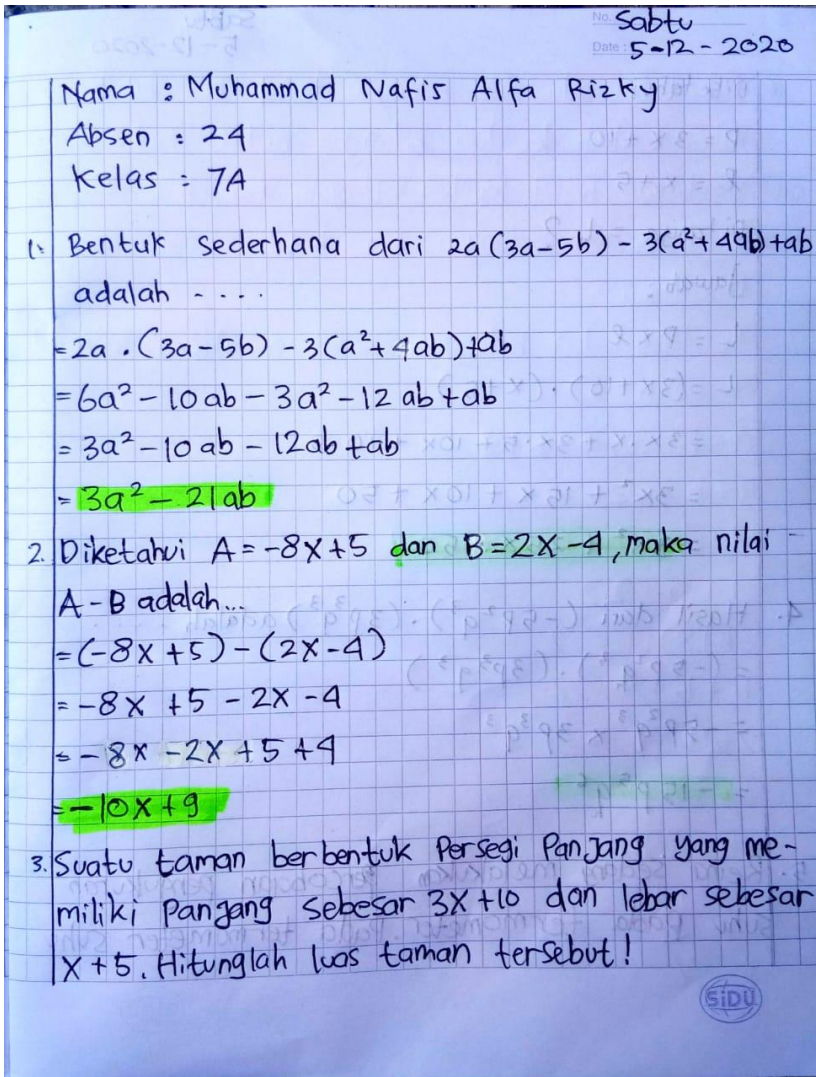 No. Sabtu
Date : 5-12-2020
Nama : Muhammad Nafis Alfa Rizky
Absen : 24
Kelas : 7A
1. Bentuk sederhana dari 2a (3a-5b) - 3(a²+4ab)+ab
adalah ....
=2a . (3a-5b) - 3(a²+4ab)+ab
=6a² - 10ab - 3a² - 12 ab +ab
= 3a² - 10 ab - 12ab +ab
= 3a² - 21ab
2. Diketahui A = -8x+5 dan B=2x-4, maka nilai
A-B adalah...
=(-8x+5) - (2x-4)
= -8x +5 - 2x - 4
= - 8x - 2x + 5 + 4
= -10x+9
3. Suatu taman berbentuk Persegi Panjang yang me-
miliki Pangang sebesar 3x+10 dan lebar sebesar
x+5. Hitunglah luas taman tersebut!
SiDU